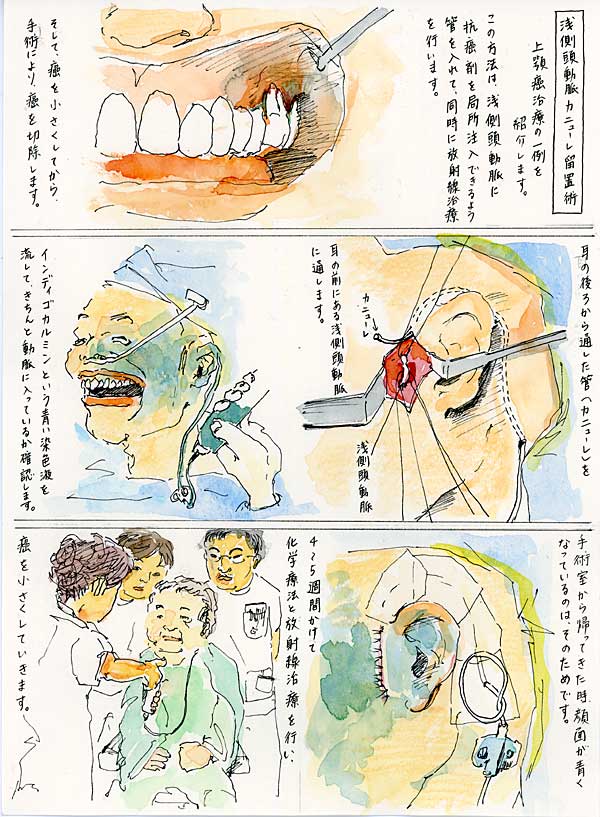 浅側頭動脈カニューレ留置術
上顎癌治療の一例を
紹介します。
この方法は、浅側頭動脈に
抗癌剤を局所注入できるよう
管を入れて、同時に放射線治療
を行います。
そして、癌を小さくしてから、
手術により、癌を切除します。
耳の後ろから通した管(カニューレ)を
カニューレ
浅側頭動脈
耳の前にある浅側頭動脈
に通します。
インディゴカルミンという青い染色液を
流して、きちんと動脈に入っているか確認します。
手術室から帰ってきた時、顔面が青く
なっているのは、そのためです。
4〜5週間かけて
化学療法と放射線治療を行い、
癌を小さくしていきます。